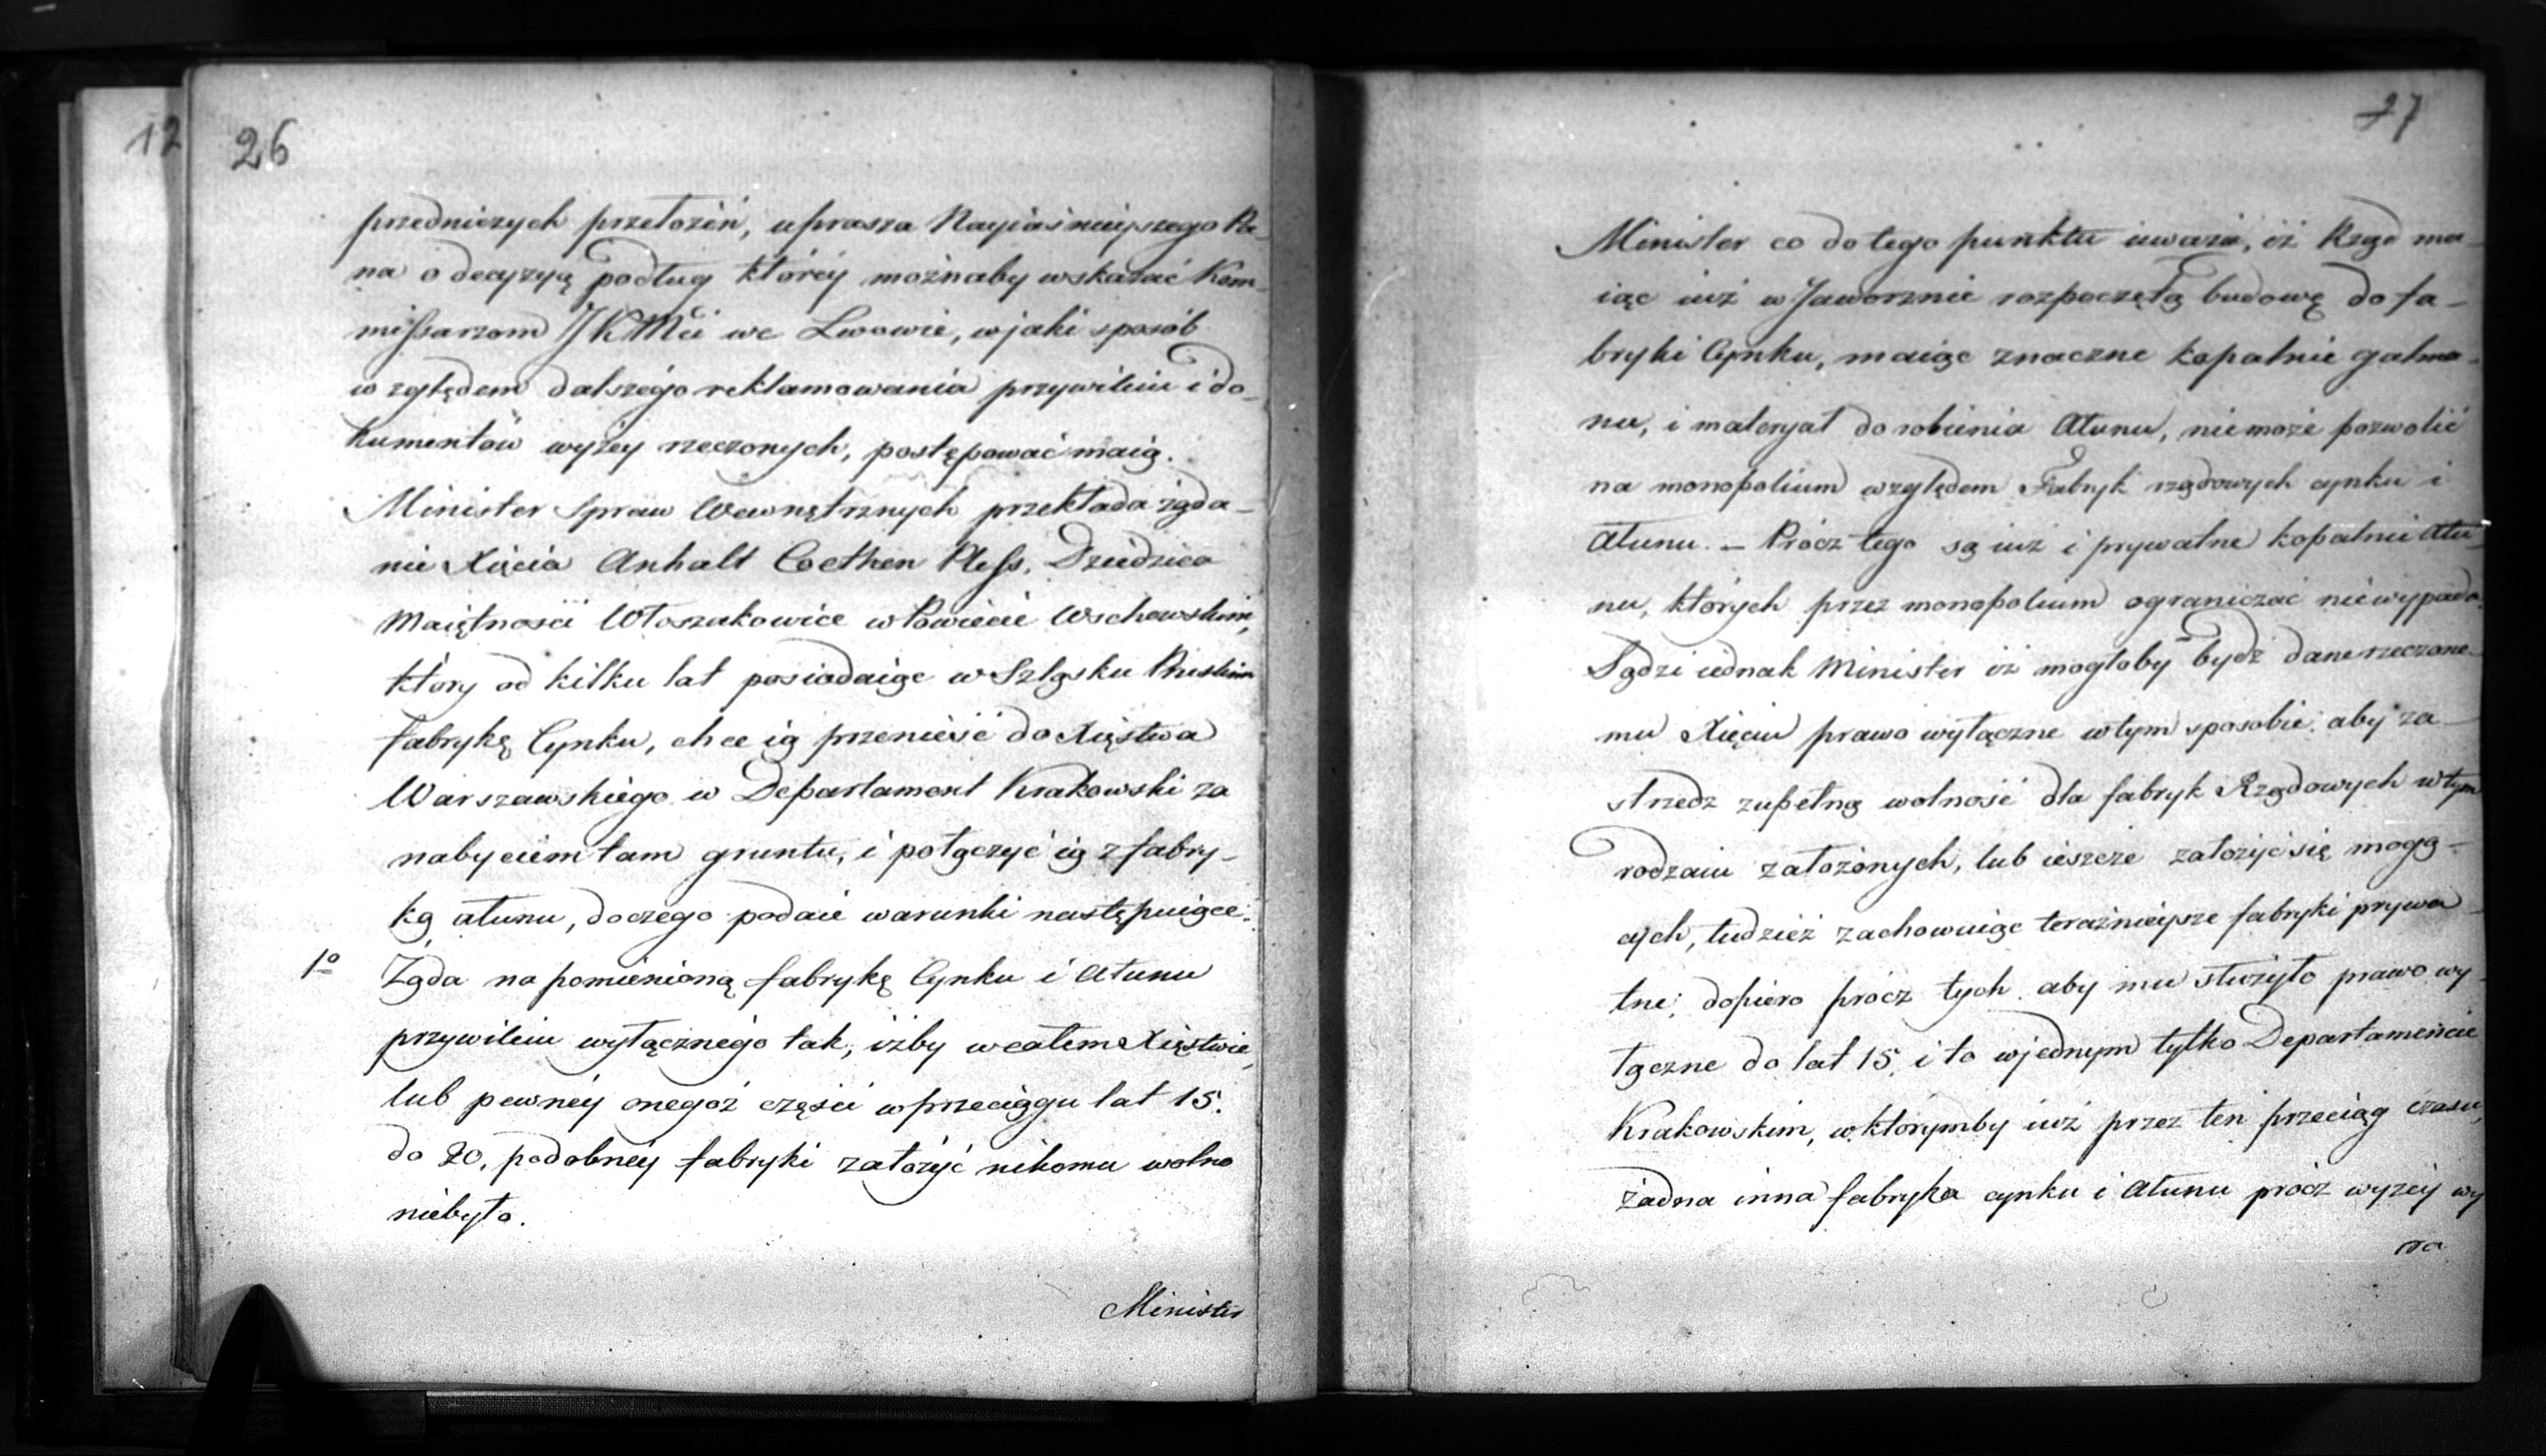 12
26
przedniczych przełożeń, uprasza Nayiaśnieyszego Pa-
na o decyzyą podług którey możnaby wskazać Kom-
mißarzom JKMci we Lwowie, w jaki sposób
względem dalszego reklamowania przywileiu i do-
kumentów wyżey rzeczonych, postępować maią.
Minister Spraw Wewnętrznych przekłada żąda-
nie Xięcia Anhalt Coethen Pleß, Dziedzica
Maiętności Włoszakowice w Powiecie Wschowskim,
który od kilku lat posiadaiąc w Szląsku Pruskim
fabrykę Cynku, chce ią przenieść do Xięstwa
Warszawskiego w Departament Krakowski za
nabyciem tam gruntu, i połączyć ią z fabry-
ką ałunu, do czego podaie warunki następuiące:
1o Żąda na pomienioną fabrykę Cynku i Ałunu
przywileiu wyłącznego tak, iżby w całem Xięstwie,
lub pewney onegoż części w przeciągu lat 15.
do 20, podobney fabryki założyć nikomu wolno
niebyło.
Minister
27
Minister co do tego punktu uważa, iż Rząd ma-
iąc iuż w Jaworznie rozpoczętą budowę do fa-
bryki Cynku, maiąc znaczne kopalnie galma-
nu, i materyał do robienia Ałunu, niemoże pozwolić
na monopolium względem Fabryk rządowych cynku i
Ałunu. – Prócz tego są iuż i prywatne kopalnie Ału-
nu, których przez monopolium ograniczać niewypada.
Sądzi iednak Minister iż mogłoby bydź dane rzeczone-
mu Xięciu prawo wyłączne w tym sposobie: aby za-
strzedz zupełną wolność dla fabryk Rządowych w tym
rodzaiu założonych, lub ieszcze założyć się mogą-
cych, tudzież zachowuiąc teraźnieysze fabryki prywa-
tne; dopiero prócz tych aby mu służyło prawo wy-
łączne do lat 15, i to w jednym tylko Departamencie
Krakowskim, w którymby iuż przez ten przeciąg czasu,
żadna inna fabryka cynku i Ałunu prócz wyżey wy